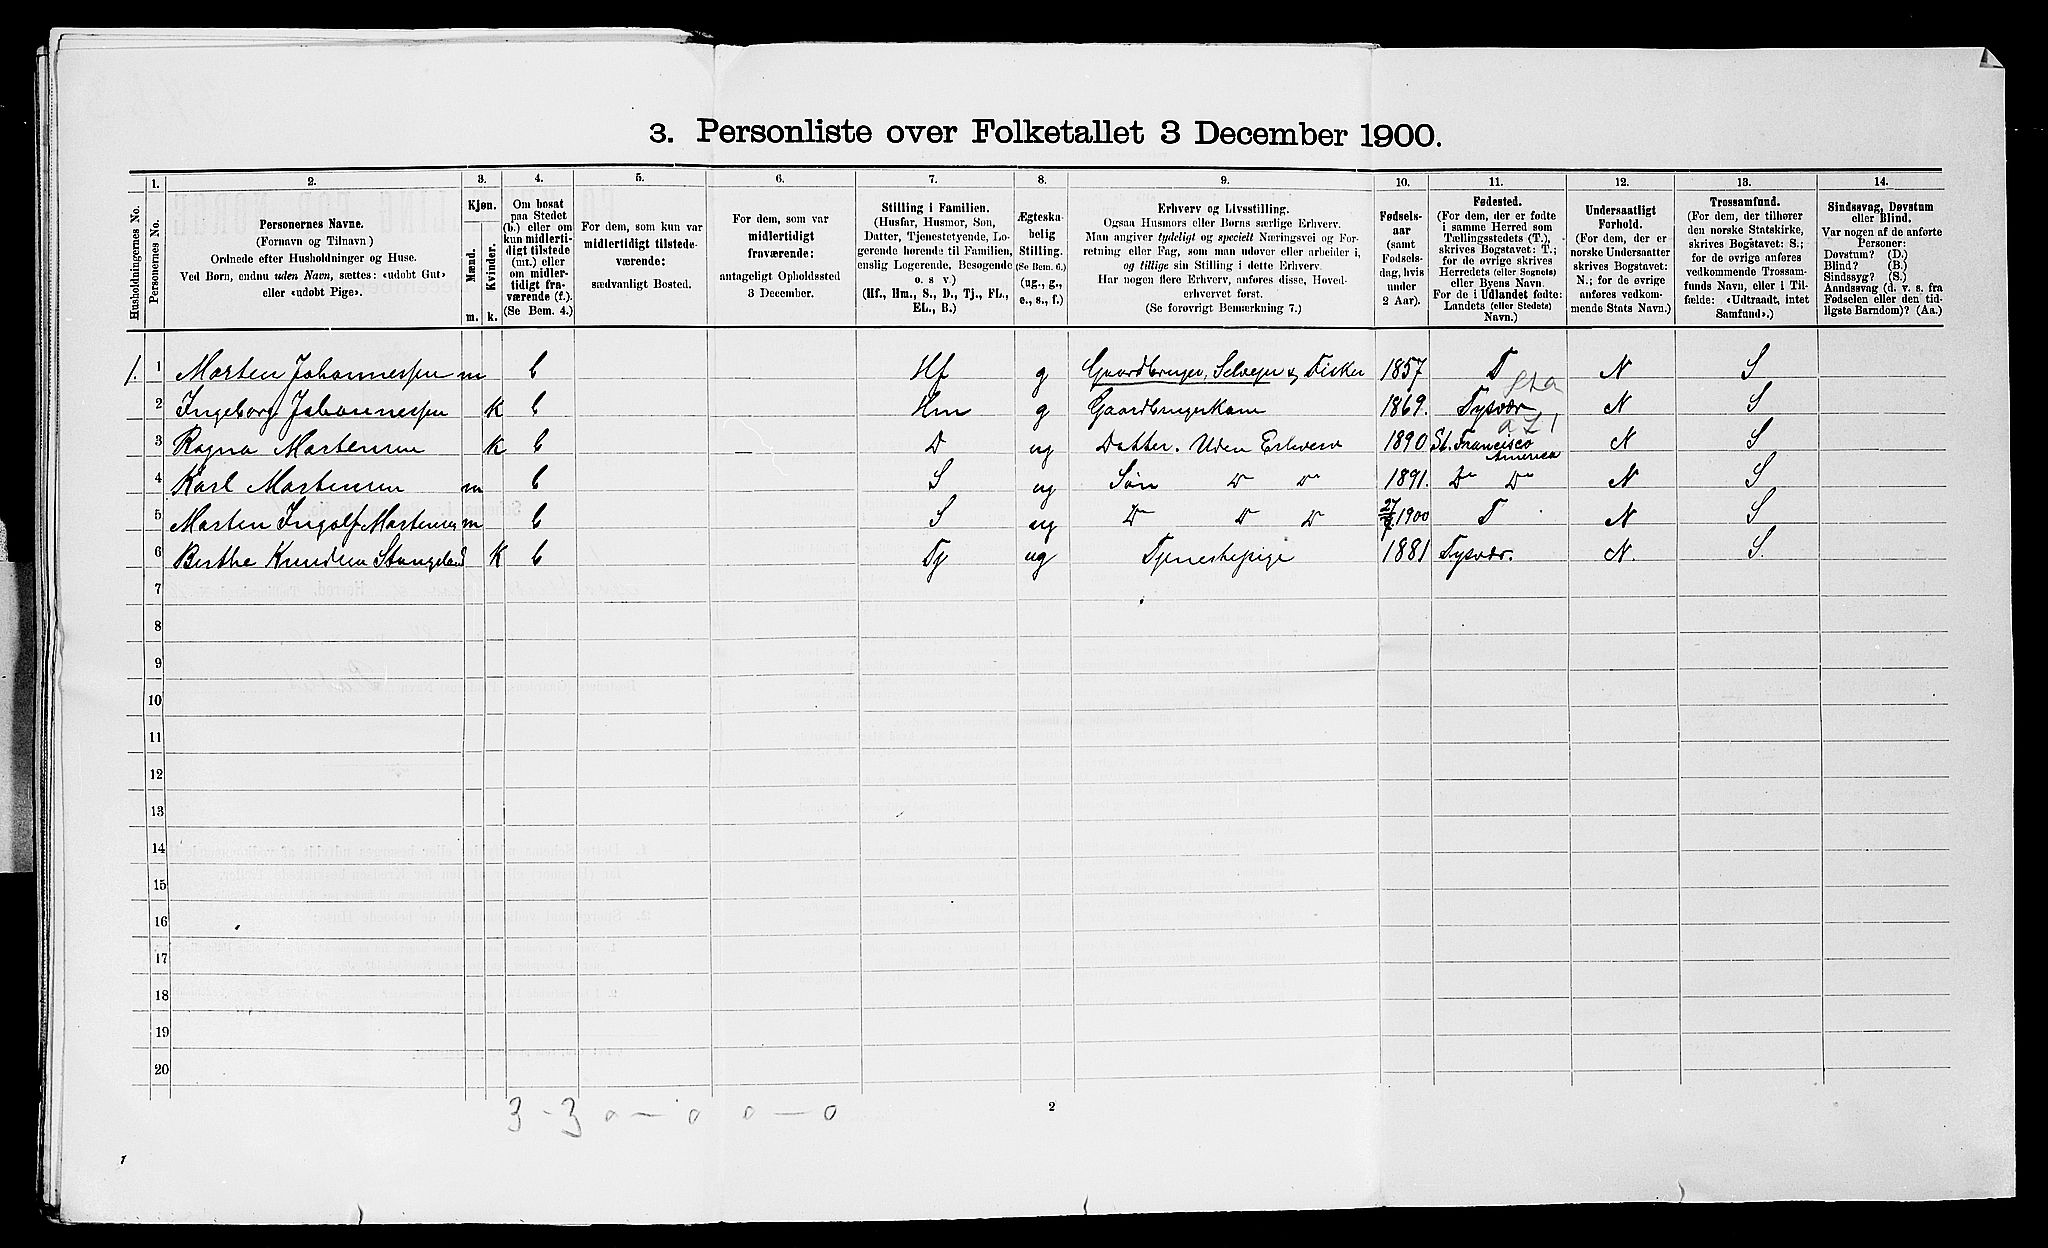 3. Personliste over Folketallet 3 December 1900.
Husholdningernes No.
1.
Personernes No.
2.
Personernes Navne.
(Fornavn og Tilnavn)
Ordnede efter Husholdninger og Huse.
Ved Børn, endnu uden Navn, sættes: «udøbt Gut»
eller «udøbt Pige».
3.
Kjøn.
Mænd.
Kvinder.
m. k.
4.
Om bosat
paa Stedet
(b.) eller om
kun midlerti-
digt tilstede
(mt.) eller
om midler-
tidigt fra-
værende (f.).
(Se Bem. 4.)
5.
For dem, som kun var
midlertidigt tilstede-
værende:
sædvanligt Bosted.
6.
For dem, som var
midlertidigt
fraværende:
antageligt Opholdssted
3 December.
7.
Stilling i Familien.
(Husfar, Husmor, Søn,
Datter, Tjenestetyende, Lo-
gerende hørende til Familien,
enslig Logerende, Besøgende
o. s. v.)
(Hf., Hm., S., D., Tj., FL.,
EL., B.)
8.
Ægteska-
belig
Stilling.
(Se Bem. 6.)
(ug., g.,
e., s., f.)
9.
Erhverv og Livsstilling.
Ogsaa Husmors eller Børns særlige Erhverv.
Man angiver tydeligt og specielt Næringsvei og For-
retning eller Fag, som man udøver eller arbeider i,
og tillige sin Stilling i dette Erhverv.
Har nogen flere Erhverv, anføres disse, Hoved-
erhvervet først.
(Se forøvrigt Bemærkning 7.)
10.
Fødsels-
aar
(samt
Fødsels-
dag, hvis
under
2 Aar).
11.
Fødested.
(For dem, der er fødte
i samme Herred som
Tællingsstedets (T.),
skrives Bogstavet: T.;
for de øvrige skrives
Herredets (eller Sognets)
eller Byens Navn.
For de i Udlandet fødte:
Landets (eller Stedets)
Navn.)
12.
Undersaatligt
Forhold.
(For dem, der er
norske Undersaatter
skrives Bogstavet:
N.; for de øvrige
anføres vedkom-
mende Stats Navn.)
13.
Trossamfund.
(For dem, der tilhører
den norske Statskirke,
skrives Bogstavet: S.;
for de øvrige anføres
vedkommende Trossam-
funds Navn, eller i Til-
fælde: «Udtraadt, intet
Samfund».)
14.
Sindssvag, Døvstum
eller Blind.
Var nogen af de anførte
Personer:
Døvstum? (D.)
Blind? (B.)
Sindssyg? (S.)
Aandssvag (d. v. s. fra
Fødselen eller den tid-
ligste Barndom)? (Aa.)
1. 1 Morten Johannessen m b Hf g Gaardbruger, Selveier & Fisker 1857 T N S
2 Ingeborg Johannessen k b Hm g Gaardbrugerkone 1869. Tysvær N S
3 Ragna Mortensen k b D ug Datter. Uden Erhverv 1890 St. Francisco America N S
4 Karl Mortensen m b S ug Søn Do Do 1891. Do Do N S
5 Morten Ingolf Mortensen m b S ug Do Do Do 27/9 1900 T N S
6 Berthe Knudsen Stangeland k b Tj ug Tjenestepige 1881 Tysvær. N. S.
7
8
9
10
11
12
13
14
15
16
17
18
19
20
3 - 3 0 — 0 0 — 0
2